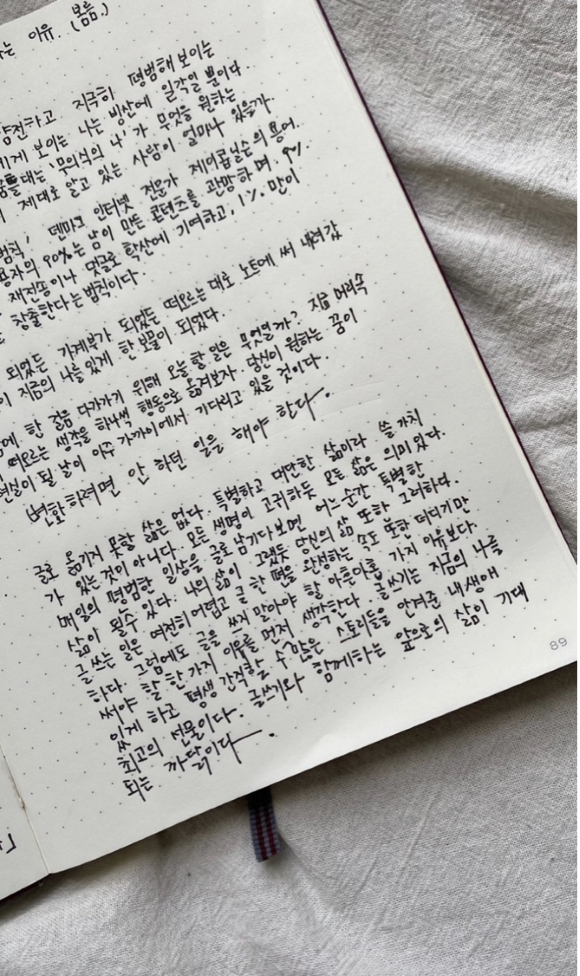 는 이유. (봄름.)
얌전하고 지극히 평범해 보이는
기게 보이는 나는 빙산에 일각일 뿐이다.
꿈틀대는 '무의식의 나'가 무엇을 원하는
제대로 알고 있는 사람이 얼마나 있을까.
법칙! 덴마크 인터넷 전문가 제이콥닐슨의 용어.
용자의 90%는 남이 만든 콘텐츠를 관망하며, 9%
재전송이나 댓글로 확산에 기여하고, 1%만이
창출한다는 법칙이다.
되었든 가계부가 되었든 떠오르는 대로 노트에 써 내려갔
이 지금의 나를 있게 한 보물이 되었다.
한 걸음 다가가기 위해 오늘 할 일은 무엇일까? 지금 머리속
떠오르는 생각을 하나씩 행동으로 옮겨보자. 당신이 원하는 꿈이
현실이 될 날이 아주 가까이에서 기다리고 있을 것이다.
변화하려면 안 하던 일을 해야 한다.
글로 옮기지 못할 삶은 없다. 특별하고 대단한 삶이라 쓸 가치
가 있는 것이 아니다. 모든 생명이 고귀하듯 모든 삶은 의미 있다.
매일의 평범한 일상을 글로 남기다보면 어느순간 특별한
삶이 될수 있다. 나의 삶이 그랬듯 당신의 삶 또한 그러하다.
글 쓰는 일은 여전히 어렵고 글 한 편을 완성하는 속도 또한 더디기만
하다. 그럼에도 글을 쓰지 말아야 할 아흔아홉 가지 이유보다.
써야 할 한 가지 이유를 먼저 생각한다. 글쓰기는 지금의 나를
있게 하고 평생 간직할 수많은 스토리들을 안겨준 내 생애
최고의 선물이다. 글쓰기와 함께하는 앞으로의 삶이 기대
되는 까닭이다.
89